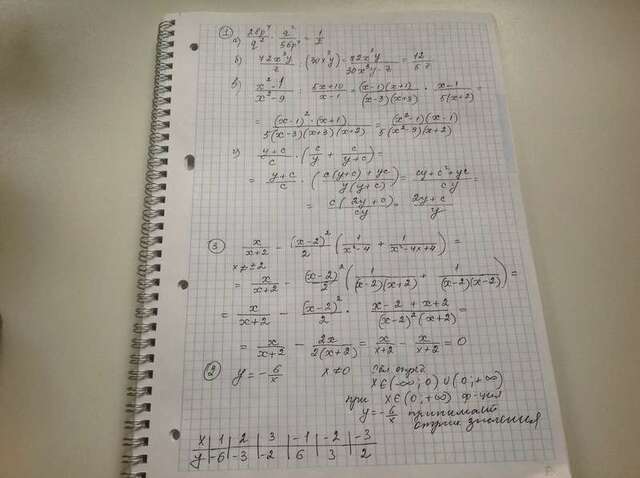 1) а) 28p⁴/q² · q²/56p⁴ = 1/2
б) 72x³y/z : (30x²y) = 72x³y/30x²y·z = 12/5z
в) x²-1/x²-9 : 5x+10/x-1 = (x-1)(x+1)/(x-3)(x+3) · x-1/5(x+2) =
= (x-1)²·(x+1)/5(x-3)(x+3)(x+2) = (x²-1)(x-1)/5(x²-9)(x+2)
г) y+c/c · (c/y + c/y+c) =
= y+c/c · (c(y+c)+yc/y(y+c)) = cy+c²+yc/cy =
= c(2y+c)/cy = 2y+c/y
3) x/x+2 - (x-2)²/2 (1/x²-4 + 1/x²-4x+4) =
x≠±2
= x/x+2 - (x-2)²/2 (1/(x-2)(x+2) + 1/(x-2)(x-2)) =
= x/x+2 - (x-2)²/2 · x-2+x+2/(x-2)²(x+2) =
= x/x+2 - 2x/2(x+2) = x/x+2 - x/x+2 = 0
2) y = -6/x x≠0 опред
x∈(-∞;0)∪(0;+∞)
при x∈(0;+∞) ф-ция
y=-6/x принимает
значения
x | 1 | 2 | 3 | -1 | -2 | -3
y | -6 | -3 | -2 | 6 | 3 | 2